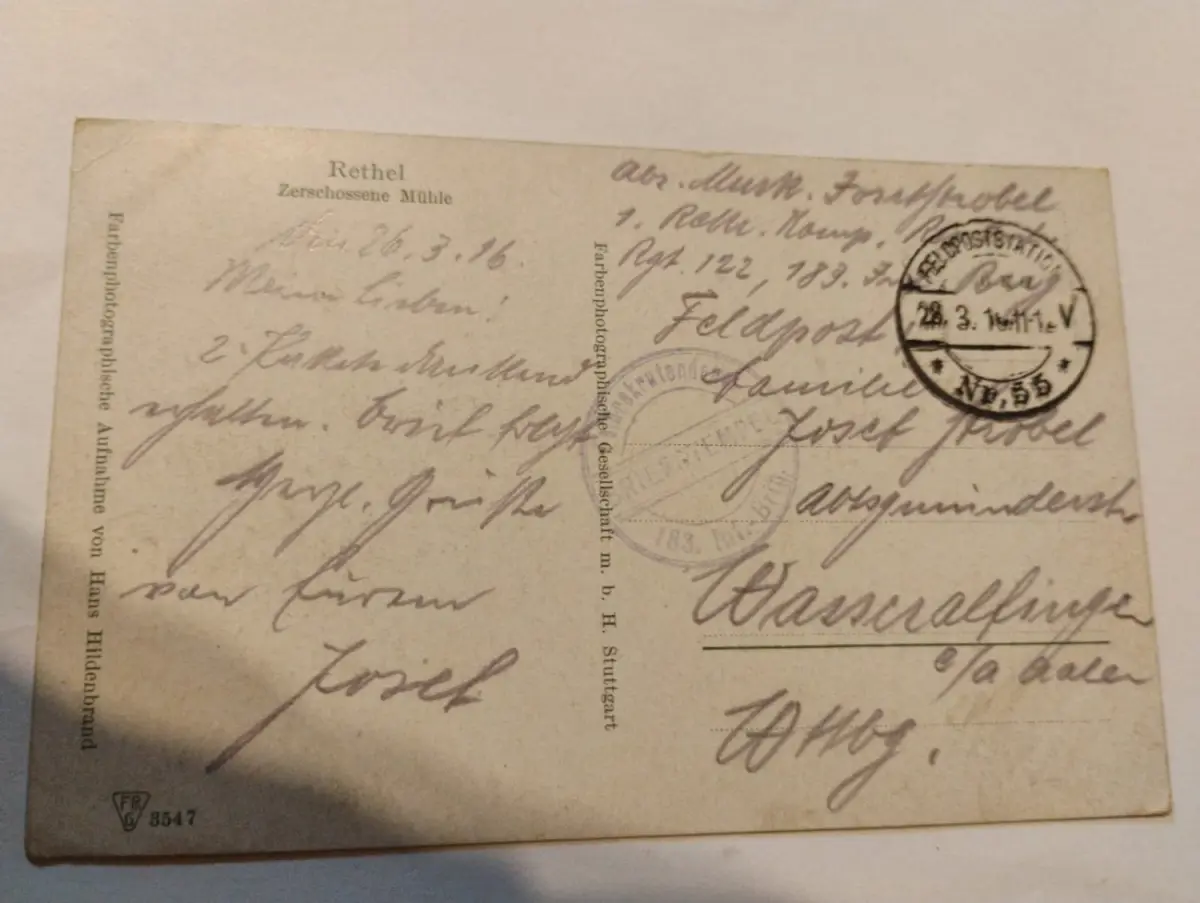 Rethel
Zerschossene Mühle
26.3.16.
Meine Lieben!
2 Pakete dankend
erhalten. Brief folgt
Herzl. Grüße
von Eurem
Josef
Farbenphotographische Aufnahme von Hans Hildenbrand
3547
Farbenphotographische Gesellschaft m. b. H. Stuttgart
Abs. Musk. Strobel
1. Rekr. Komp.
Rgt. 122, 183. Brig
Feldpost
FELDPOSTSTATION
28.3.16.11-12V
* Nr. 55 *
Rekrutendepot
BRIEFSTEMPEL
183. Inf. Brig.
Familie
Josef Strobel
Abtsgmünderstr.
Wasseralfingen
O/A Aalen
Wttbg.